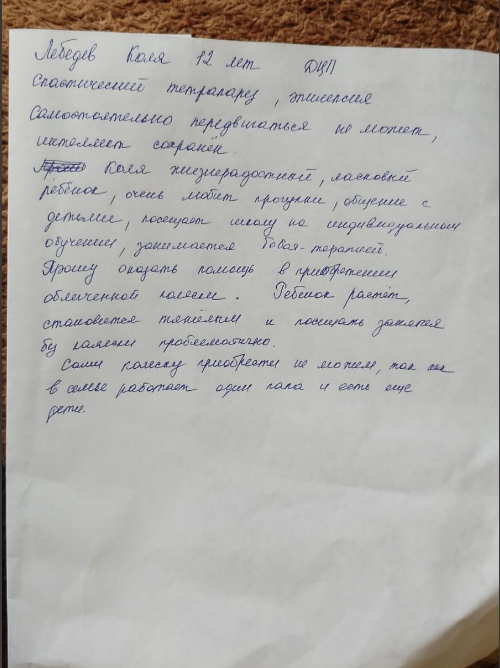 Лебедев Коля 12 лет ДЦП
Спастический тетрапарез, эпилепсия
Самостоятельно передвигаться не может,
интеллект сохранён.
Коля жизнерадостный, ласковый
ребёнок, очень любит прогулки, общение с
детьми, посещает школу на индивидуальном
обучении, занимается Бобат-терапией.
Прошу оказать помощь в приобретении
облегченной коляски. Ребенок растёт,
становится тяжёлым и посещать занятия
бу коляски проблематично.
Сами коляску приобрести не можем, так как
в семье работает один папа и есть еще
дети.